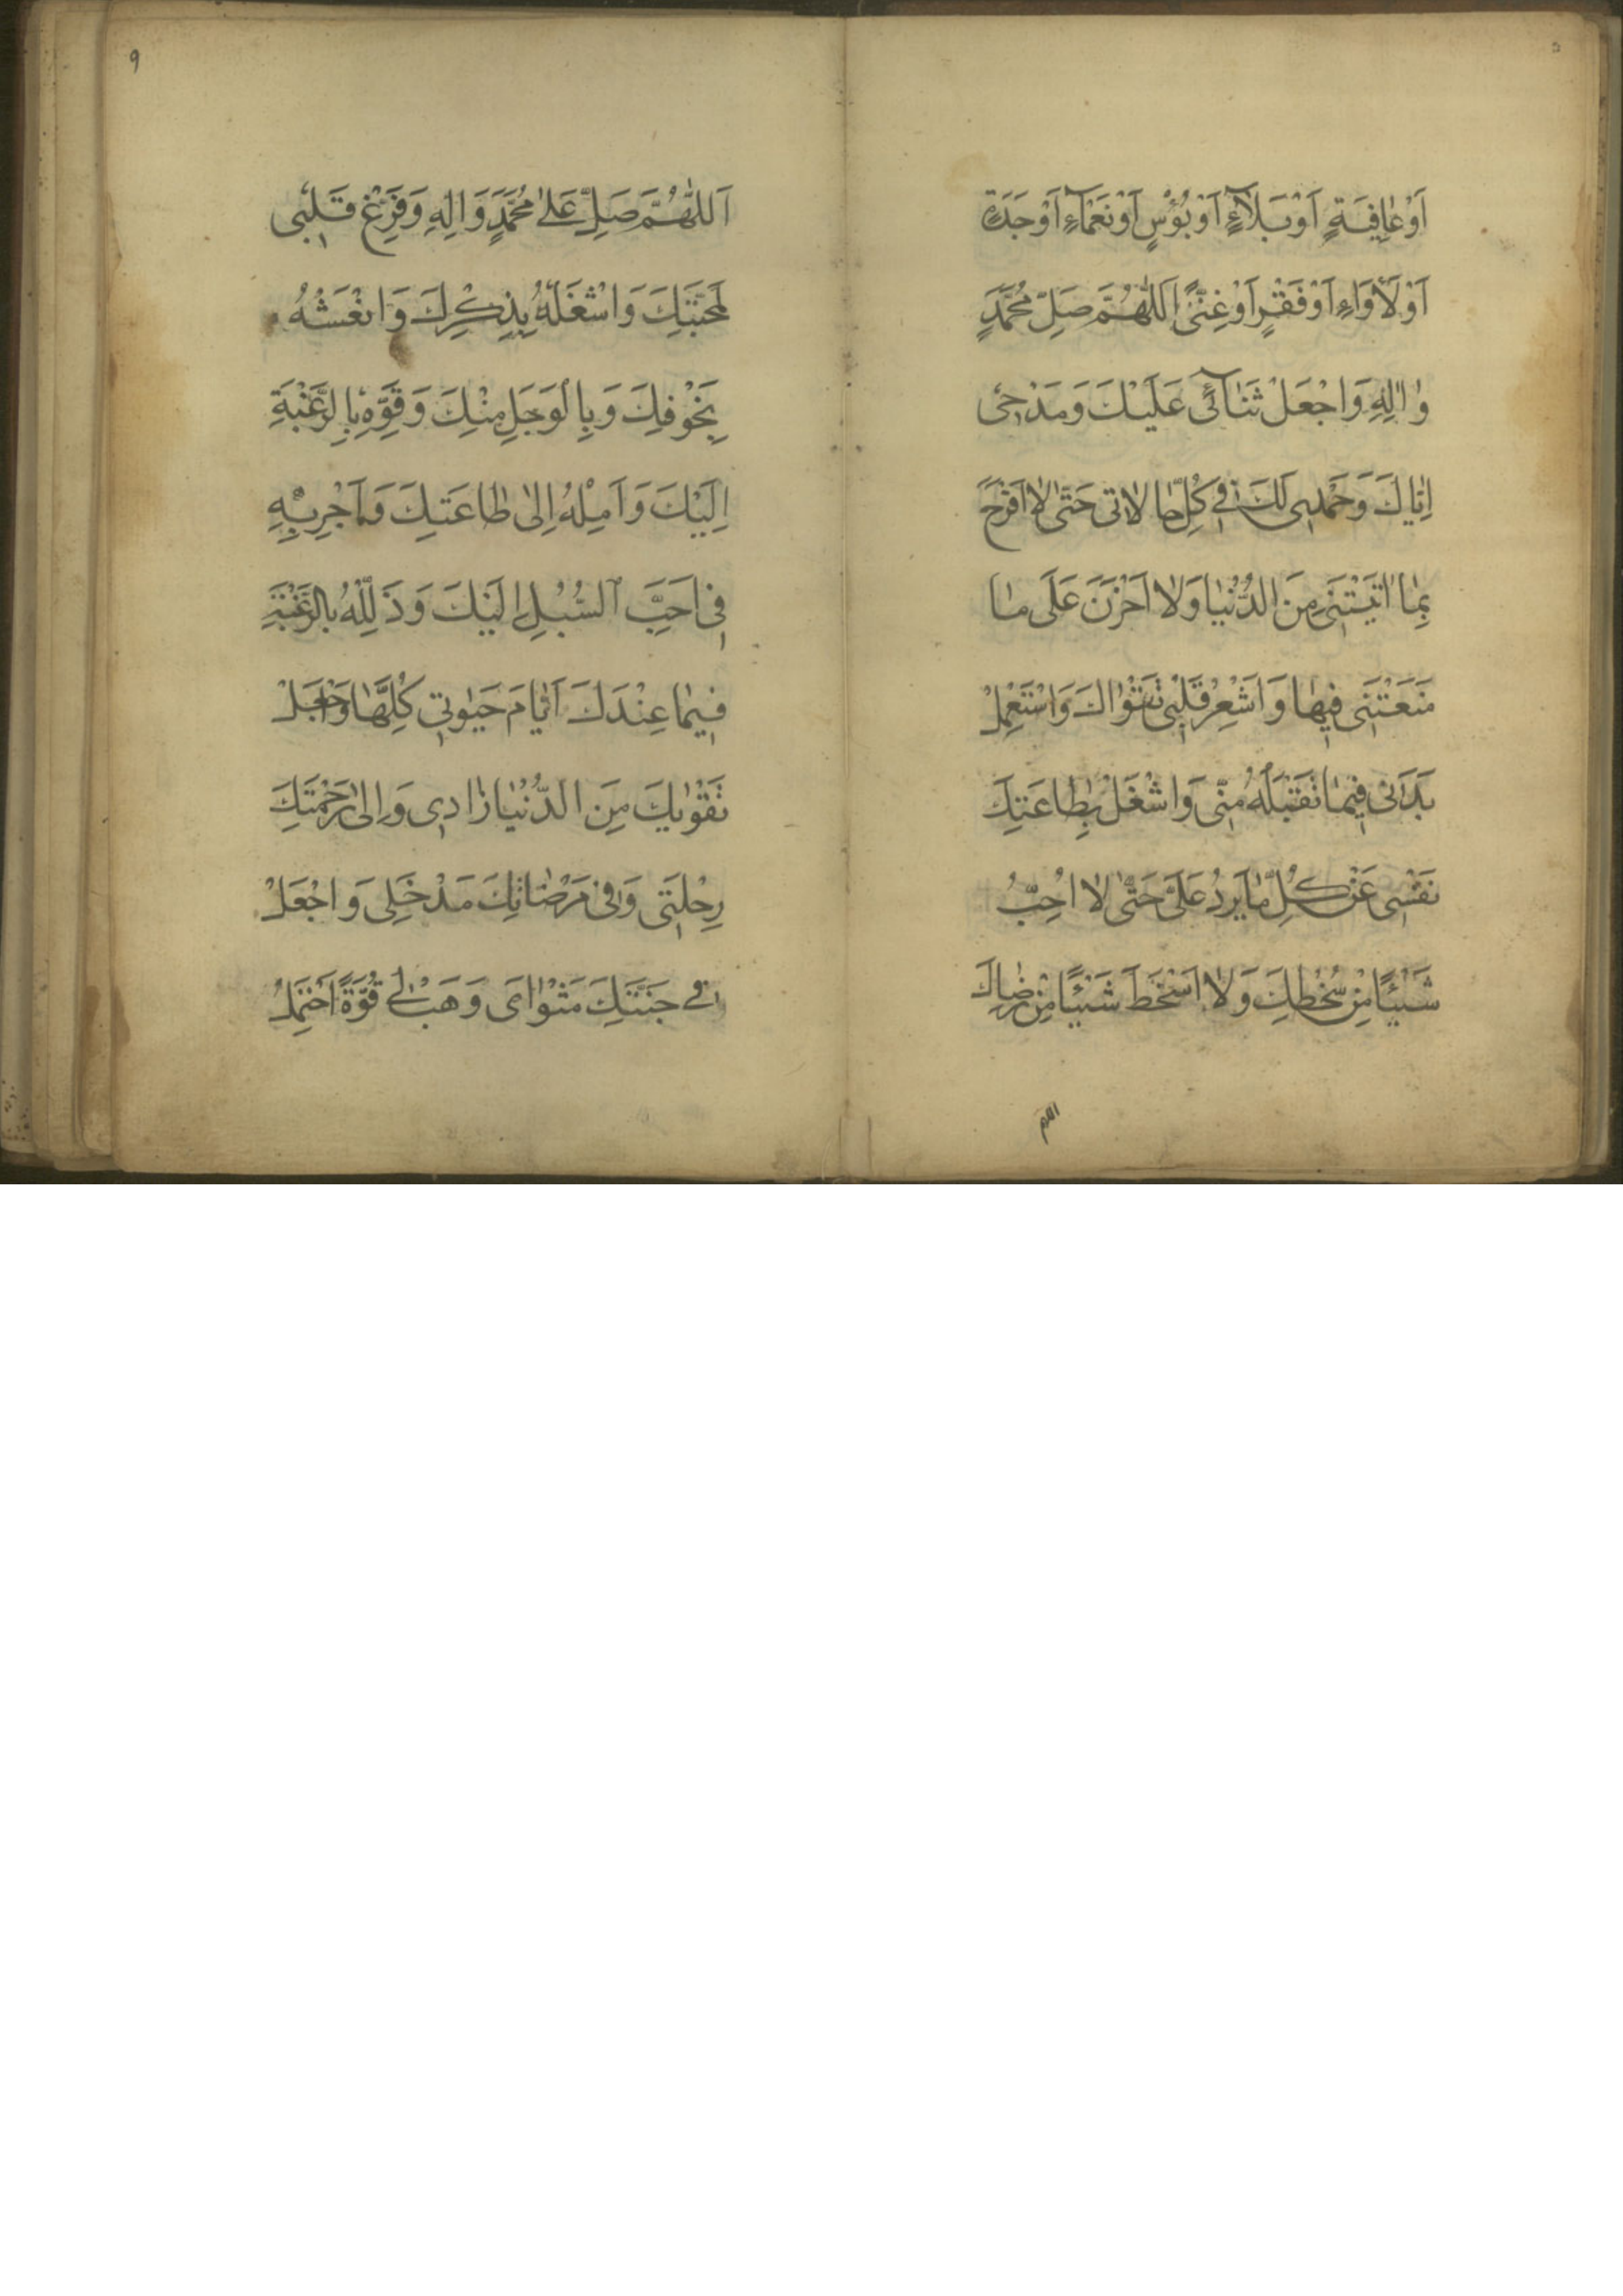 اَوْ عٰافِيَةٍ اَوْ بَلَآءٍ اَوْ بُؤْسٍ اَوْ نَعْمٰآءِ اَوْ جَدَةٍ
اَوْ لَأْوَاءِ اَوْ فَقْرٍ اَوْ غِنًى اَللّٰهُمَّ صَلِّ مُحَمَّدٍ
وٰالِهِ وَاجْعَلْ ثَنٰآئى عَلَيْكَ وَمَدْحى
اِيّٰاكَ وَحَمْدِى لَكَ فى كُلِّ حٰالاٰتى حَتّٰى لاٰ اَفْرَحَ
بِمٰا اٰتَيْتَنى مِنَ الدُّنْيٰا وَلاٰ اَحْزَنَ عَلَى مٰا
مَنَعْتَنى فيهٰا وَاَشْعِرْ قَلْبى تَقْوٰاكَ وَاسْتَعْمِلْ
بَدَنى فيمٰا تَقْبَلُهُ مِنّى وَاشْغَلْ بِطٰاعَتِكَ
نَفْسى عَنْ كُلِّ مٰا يَرِدُ عَلَىَّ حَتّٰى لاٰ اُحِبُّ
شَيْئًا مِنْ سُخْطِكَ وَلاٰ اَسْخَطَ شَيْئًا مِنْ رِضٰاكَ
اللهم
٩
اَللّٰهُمَّ صَلِّ عَلٰى مُحَمَّدٍ وَاٰلِهِ وَفَرِّغْ قَلْبى
لِمَحَبَّتِكَ وَاشْغَلْهُ بِذِكْرِكَ وَانْعَشْهُ
بِخَوْفِكَ وَبِالْوَجَلِ مِنْكَ وَقَوِّهِ بِالرَّغْبَةِ
اِلَيْكَ وَاَمِلْهُ اِلٰى طٰاعَتِكَ وَاَجْرِ بِهِ
فى اَحَبِّ السُّبُلِ اِلَيْكَ وَذَلِّلْهُ بِالرَّغْبَةِ
فيمٰا عِنْدَكَ اَيّٰامَ حَيٰوتى كُلِّهٰا وَاجْعَلْ
تَقْوٰيكَ مِنَ الدُّنْيٰا زٰادِى وَاِلٰى رَحْمَتِكَ
رِحْلَتى وَفى مَرْضٰاتِكَ مَدْخَلِى وَاجْعَلْ
فى جَنَّتِكَ مَثْوٰاىَ وَهَبْ لى قُوَّةً اَحْتَمِلُ